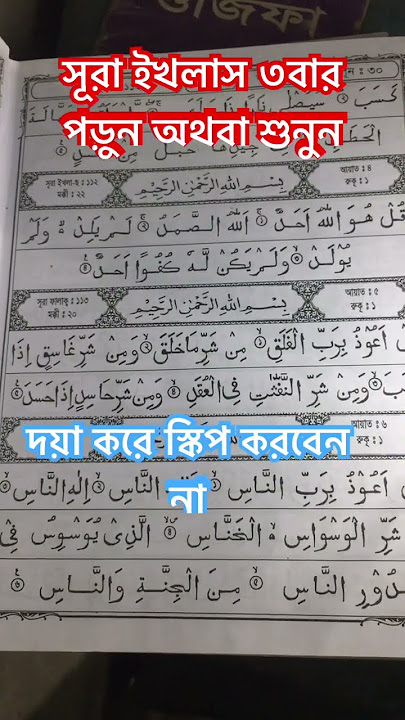 ওজিফা
সূরা ইখলাস ৩বার
পড়ুন অথবা শুনুন
: ৩০
كَسَبَ
الْحَطَبِ
সূরা ইখলা-ছ : ১১২
মক্কী : ২২
بِسْمِ اللهِ الرَّحْمٰنِ الرَّحِيْمِ
আয়াত : ৪
রুকু : ১
قُلْ هُوَ اللهُ اَحَدٌ ۚ اَللهُ الصَّمَدُ ۚ لَمْ يَلِدْ ۙ وَلَمْ
يُوْلَدْ ۙ وَلَمْ يَكُنْ لَّهٗ كُفُوًا اَحَدٌ
সূরা ফালাক্ব : ১১৩
মক্কী : ২০
بِسْمِ اللهِ الرَّحْمٰنِ الرَّحِيْمِ
আয়াত : ৫
রুকু : ১
اَعُوْذُ بِرَبِّ الْفَلَقِ ۙ مِنْ شَرِّ مَا خَلَقَ ۙ وَمِنْ شَرِّ غَاسِقٍ اِذَا
وَمِنْ شَرِّ النَّفّٰثٰتِ فِى الْعُقَدِ ۙ وَمِنْ شَرِّ حَاسِدٍ اِذَا حَسَدَ
আয়াত : ৬
রুকু : ১
দয়া করে স্কিপ করবেন
না
اَعُوْذُ بِرَبِّ النَّاسِ ۙ النَّاسِ ۙ اِلٰهِ النَّاسِ
شَرِّ الْوَسْوَاسِ ۙ الْخَنَّاسِ ۙ الَّذِىْ يُوَسْوِسُ فِىْ
صُدُوْرِ النَّاسِ ۙ مِنَ الْجِنَّةِ وَالنَّاسِ